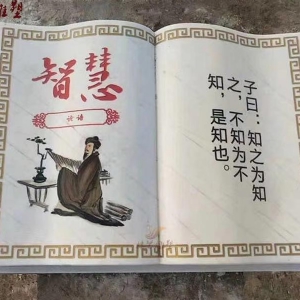 雕塑
智慧
论语
子曰：知之为知
之，不知为不
知，是知也。